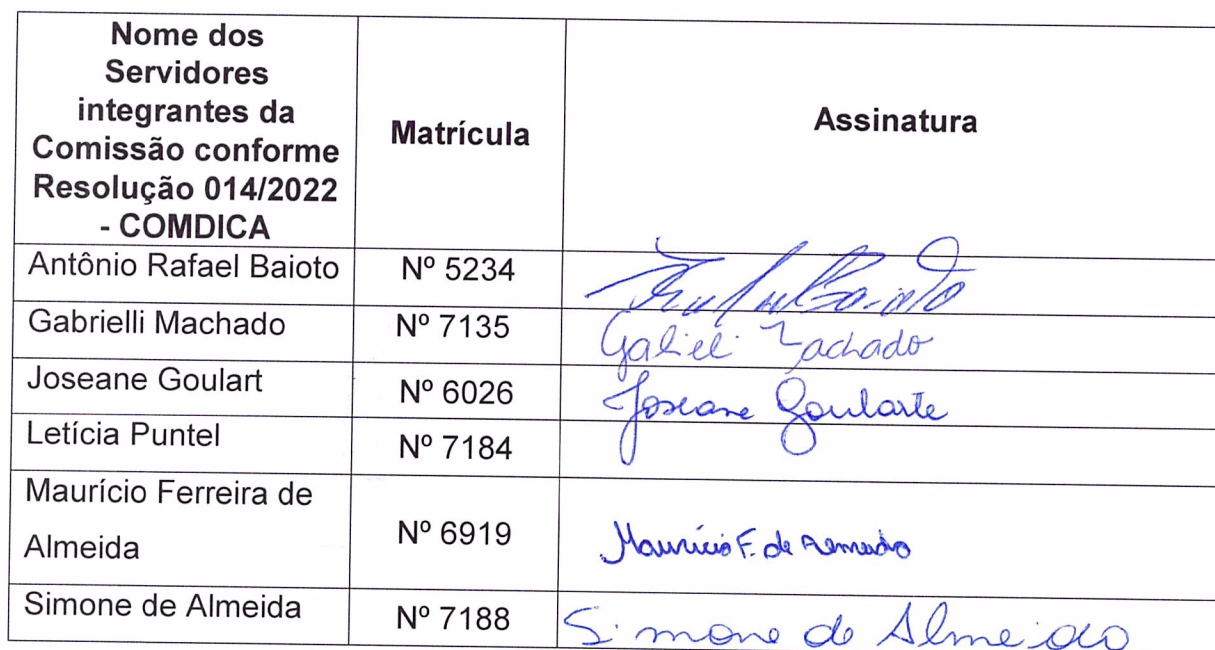 Nome dos
Servidores
integrantes da
Comissão conforme
Resolução 014/2022
- COMDICA
Matrícula
Assinatura
Antônio Rafael Baioto Nº 5234
Gabrielli Machado Nº 7135 Gabrieli Machado
Joseane Goulart Nº 6026 Joseane Goularte
Letícia Puntel Nº 7184
Maurício Ferreira de
Almeida
Nº 6919 Maurício F. de Almeida
Simone de Almeida Nº 7188 Simone de Almeida